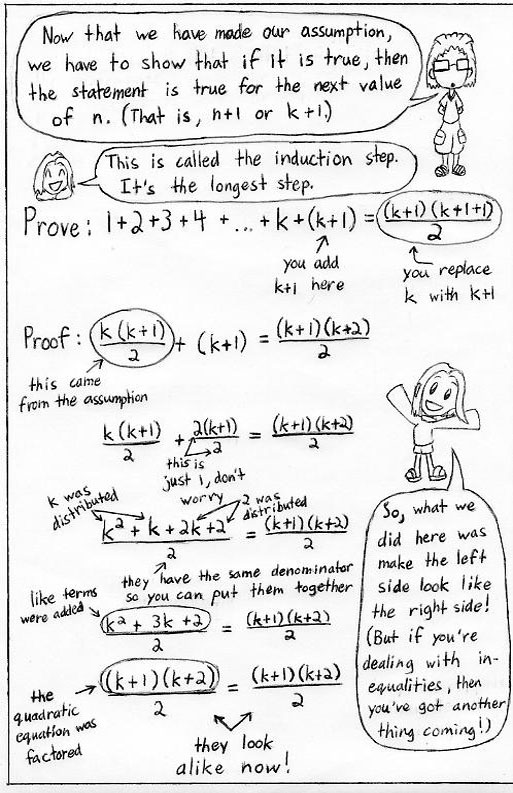 Now that we have made our assumption,
we have to show that if it is true, then
the statement is true for the next value
of n. (That is, n+1 or k+1.)
This is called the induction step.
It's the longest step.
Prove: 1+2+3+4 + ... + k + (k+1) = (k+1)(k+1+1)/2
you add
k+1 here
you replace
k with k+1
Proof: k(k+1)/2 + (k+1) = (k+1)(k+2)/2
this came
from the assumption
k(k+1)/2 + 2(k+1)/2 = (k+1)(k+2)/2
this is
just 1, don't
worry
k was
distributed
2 was
distributed
k² + k + 2k + 2/2 = (k+1)(k+2)/2
they have the same denominator
so you can put them together
like terms
were added
k² + 3k + 2/2 = (k+1)(k+2)/2
the
quadratic
equation was
factored
(k+1)(k+2)/2 = (k+1)(k+2)/2
they look
alike now!
So, what we
did here was
make the left
side look like
the right side!
(But if you're
dealing with in-
equalities, then
you've got another
thing coming!)